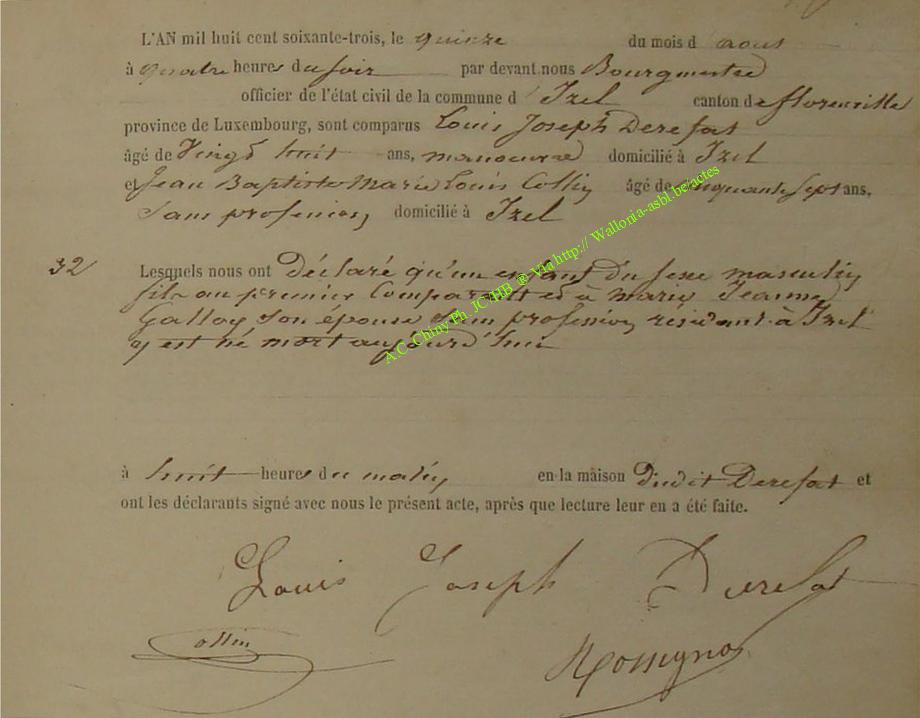 L'AN mil huit cent soixante-trois, le quinze du mois d aout
à quatre heures du soir par devant nous Bourgmestre
officier de l'état civil de la commune d' Izel canton de florenville
province de Luxembourg, sont comparus Louis Joseph Derefat
âgé de Vingt huit ans, manoeuvre domicilié à Izel
et Jean Baptiste Marie Louis Collin âgé de cinquante sept ans,
Sans profession, domicilié à Izel
32 Lesquels nous ont Déclaré qu'un enfant Du sexe masculin
fils au premier Comparant et à marie Jeanne
son épouse sans profession, résidant à Izel
y est né mort aujourd'hui
à huit heures du matin en la maison Dudit Derefat et
ont les déclarants signé avec nous le présent acte, après que lecture leur en a été faite.
Louis Joseph Derefat
Collin
Rossignol
A.C. Chiny Ph. JC.HB ® Via http:// Wallonia-asbl.be/actes